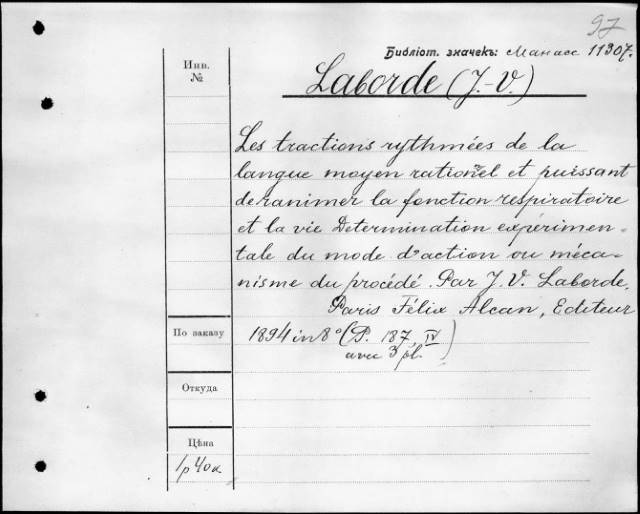 97
Библіот. значекъ: Манасс 11307.
Инв.
№
Laborde (J.-V.)
Les tractions rythmées de la
langue moyen rationnel et puissant
de ranimer la fonction respiratoire
et la vie Determination expérimen-
tale du mode d'action ou méca-
nisme du procédé. Par J. V. Laborde.
Paris Félix Alcan, Editeur
По заказу
1894 in 8° (P. 187, IV)
avec 3 pl.
Откуда
Цѣна
1р 40к